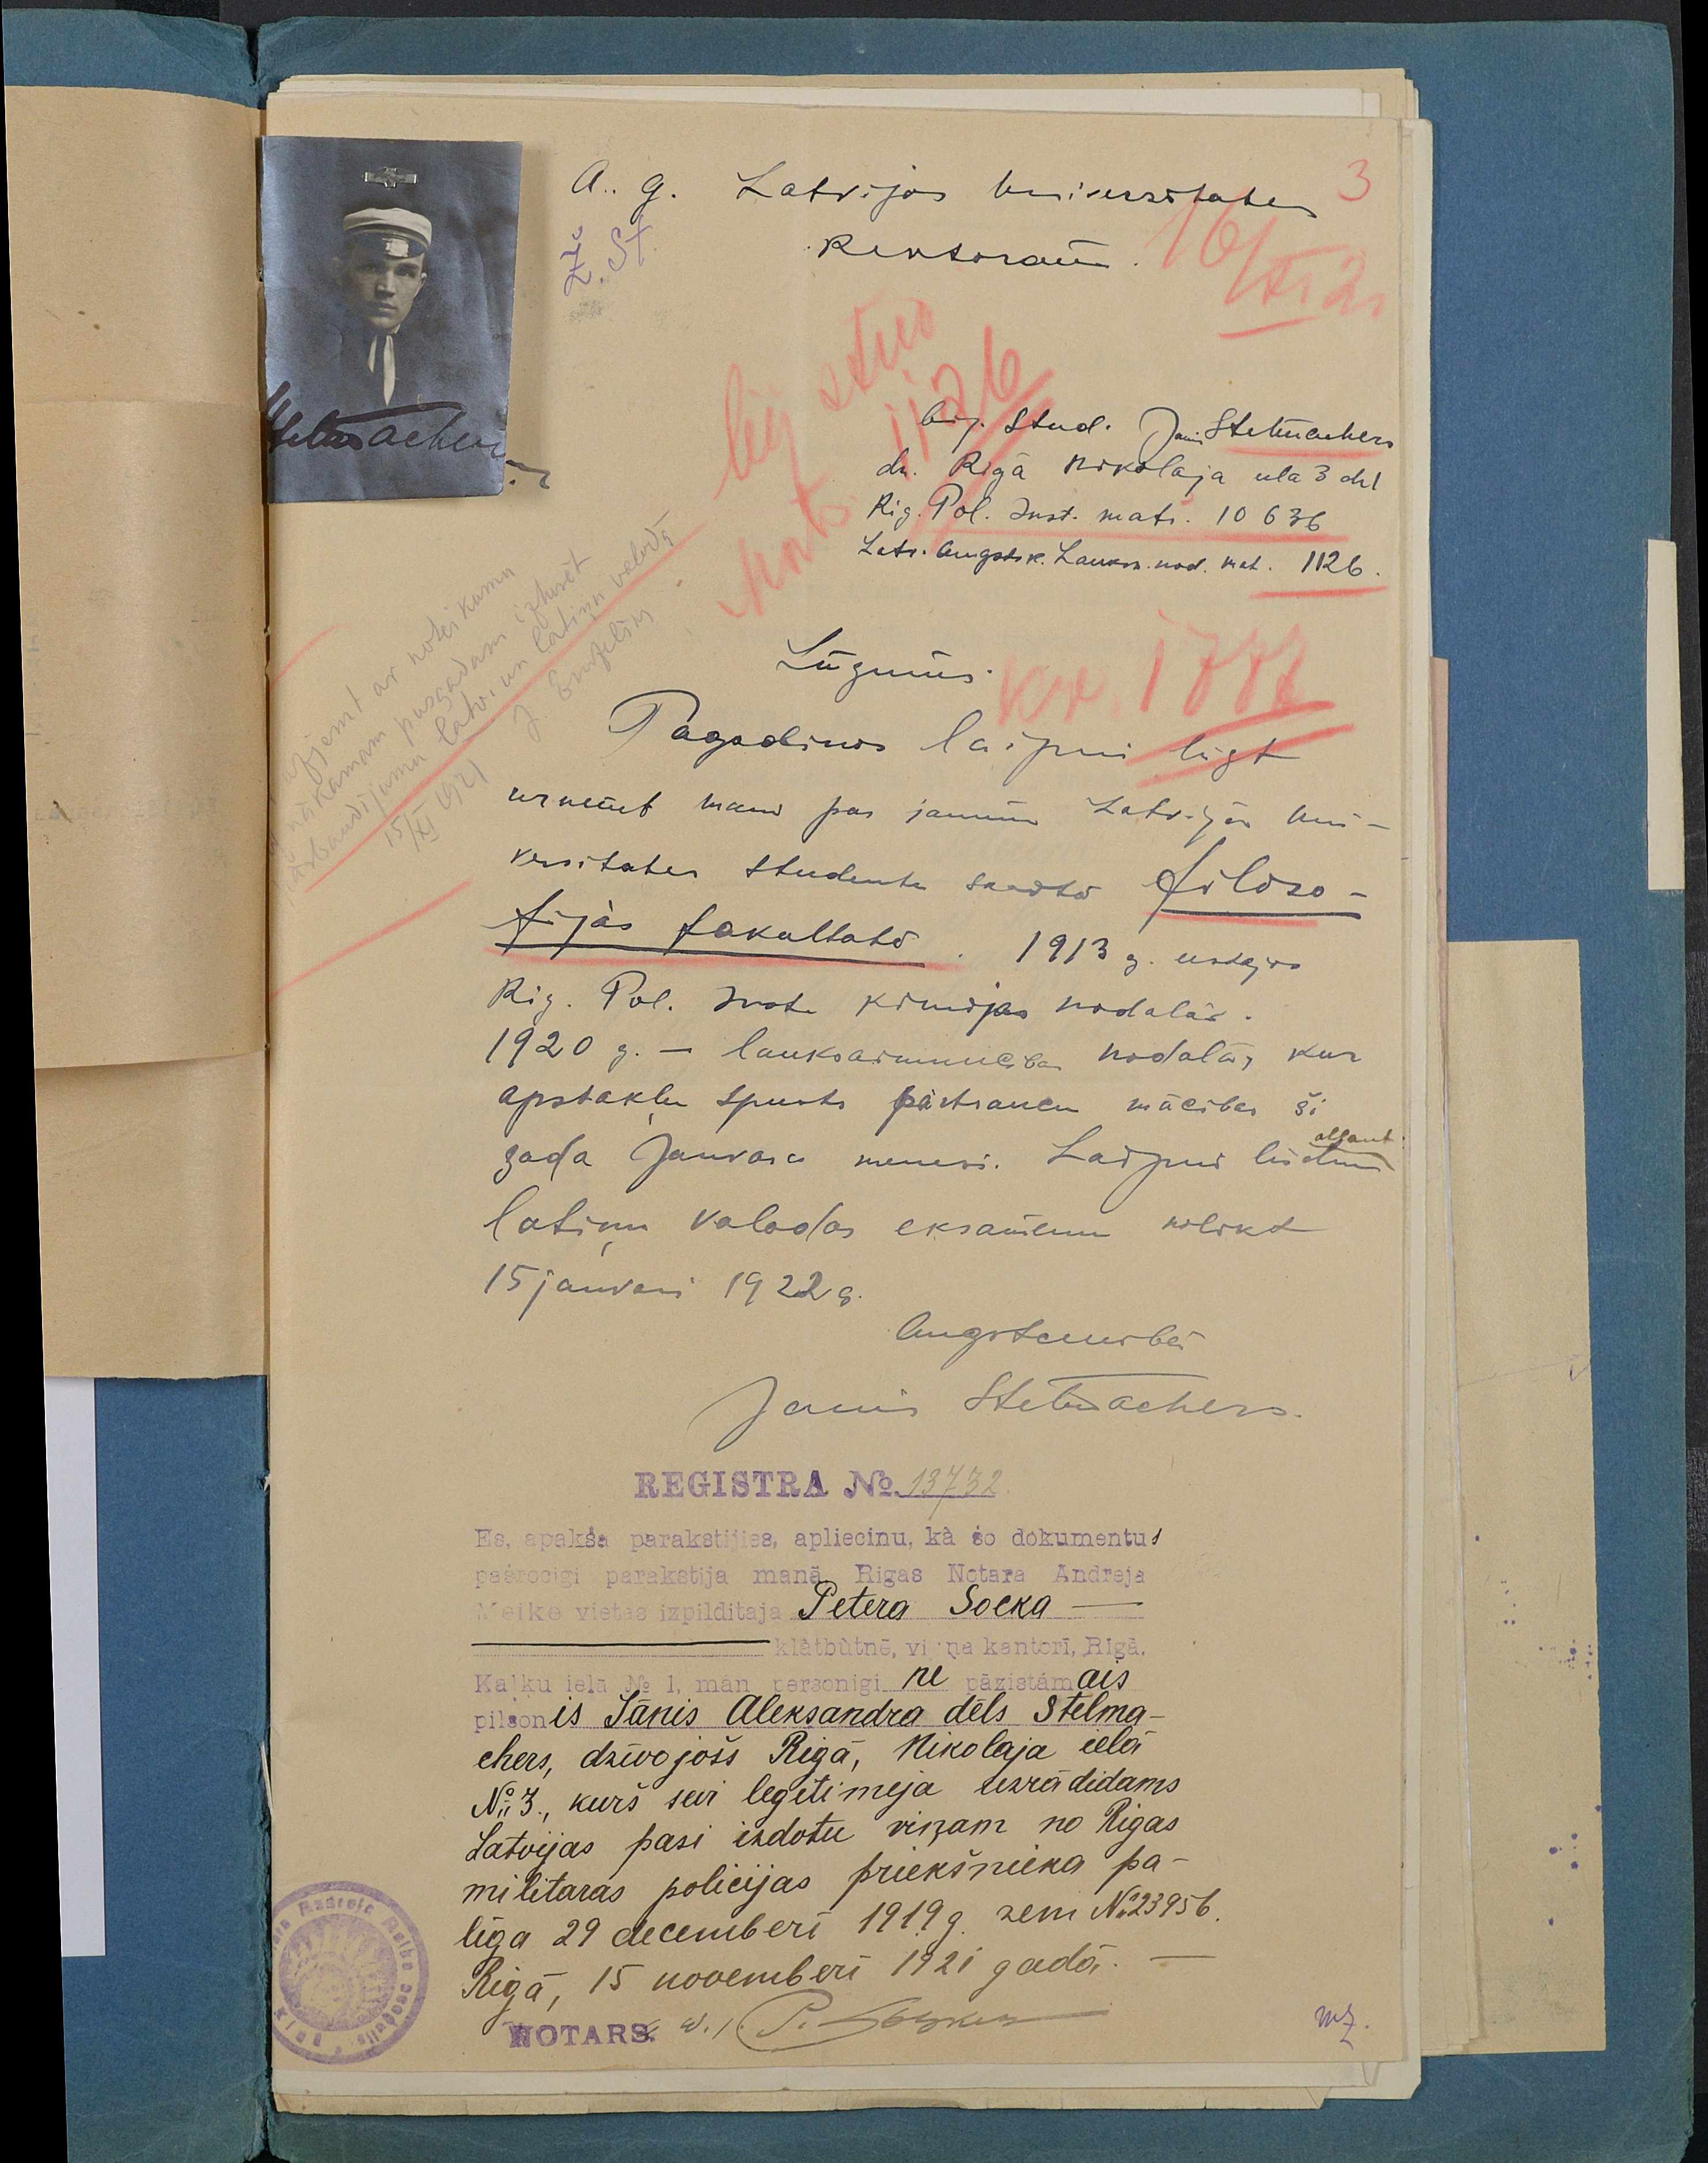 3
A. g. Latvijas Universitates
Rektoram.
16/XI 21
Ž. St.
bij stud
Matr. 1126
bij. Stud. Janis Stelmachers
dz. Rigā Nikolaja iela 3 dz 1
Rig. Pol. Inst. matr. 10636
Latv. Augstsk. Lauks. nod. mat. 1126.
Stelmachers
uzņemt ar noteikumu
nākamam pusgadam izturēt
pārbaudījumu latv. un latiņu valodā
15/XI 1921 J. Endzelins
Lūgums.
kv. 1787
Pagodinos laipni lūgt
uzņemt mani par jaunu Latvijas Uni-
versitates studentu skaitā filozo-
fijas fakultatē. 1913 g. iestajos
Rig. Pol. Inst. ķimijas nodaļā.
1920 g. – lauksaimniecibas nodaļā, kur
apstakļu spiests pārtraucu mācibas ši
gada Janvara menesi. Laipni lūdzu atļaut
latiņu valodas eksamenu nolikt
15 janvari 1922 g.
Augstcienibā
Janis Stelmachers.
REGISTRA No. 13732
Es, apakšā parakstijies, apliecinu, kà šo dokumentu s
pašrocigi parakstija manā, Rigas Notara Andreja
Meike vietas izpilditaja Petera Socka —
klàtbùtnē, viņa kantorī, Rīgā,
Kaļķu ielā № 1, man personigi ne pàzistàm ais
pilson is Jānis Aleksandra dēls Stelma-
chers, dzīvojošs Rigā, Nikolaja ielā
No 3., kurš sevi legitimeja uzrādidams
Latvijas pasi izdotu viņam no Rigas
militaras policijas priekšnieka pa-
līga 29 decemberī 1919 g. zem No 23956.
Rigā, 15 novemberī 1921 gadā. —
NOTARS. v. i. P. Sockis
mž.